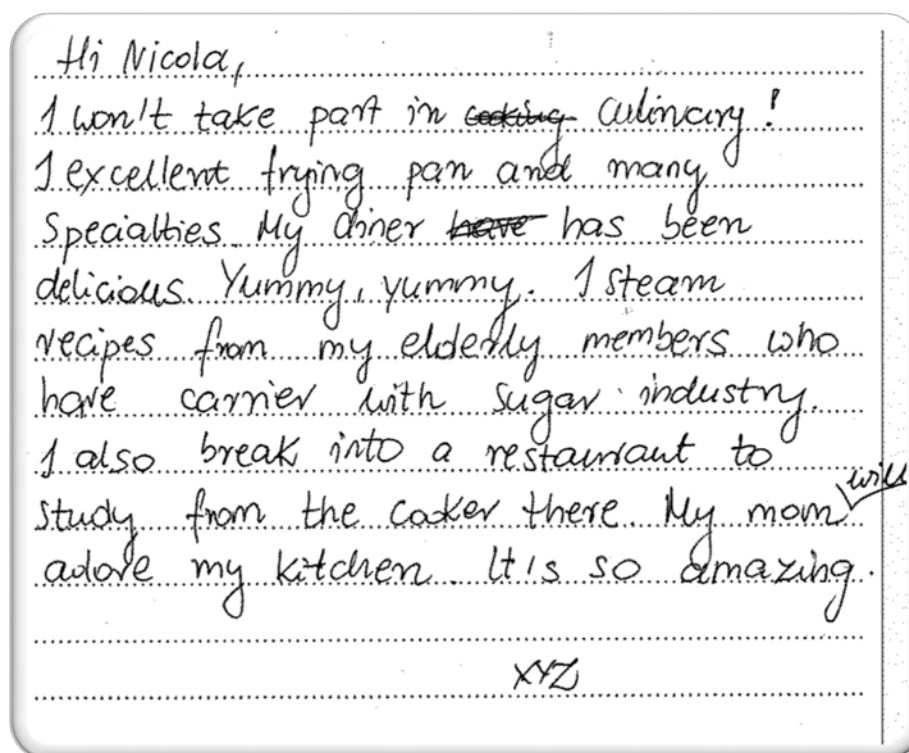 Hi Nicola,
I won't take part in cooking culinary!
I excellent frying pan and many
specialties. My diner have has been
delicious. Yummy, yummy. I steam
recipes from my elderly members who
have carrier with sugar industry.
I also break into a restaurant to
study from the cooker there. My mom will
adore my kitchen. It's so amazing.
XYZ